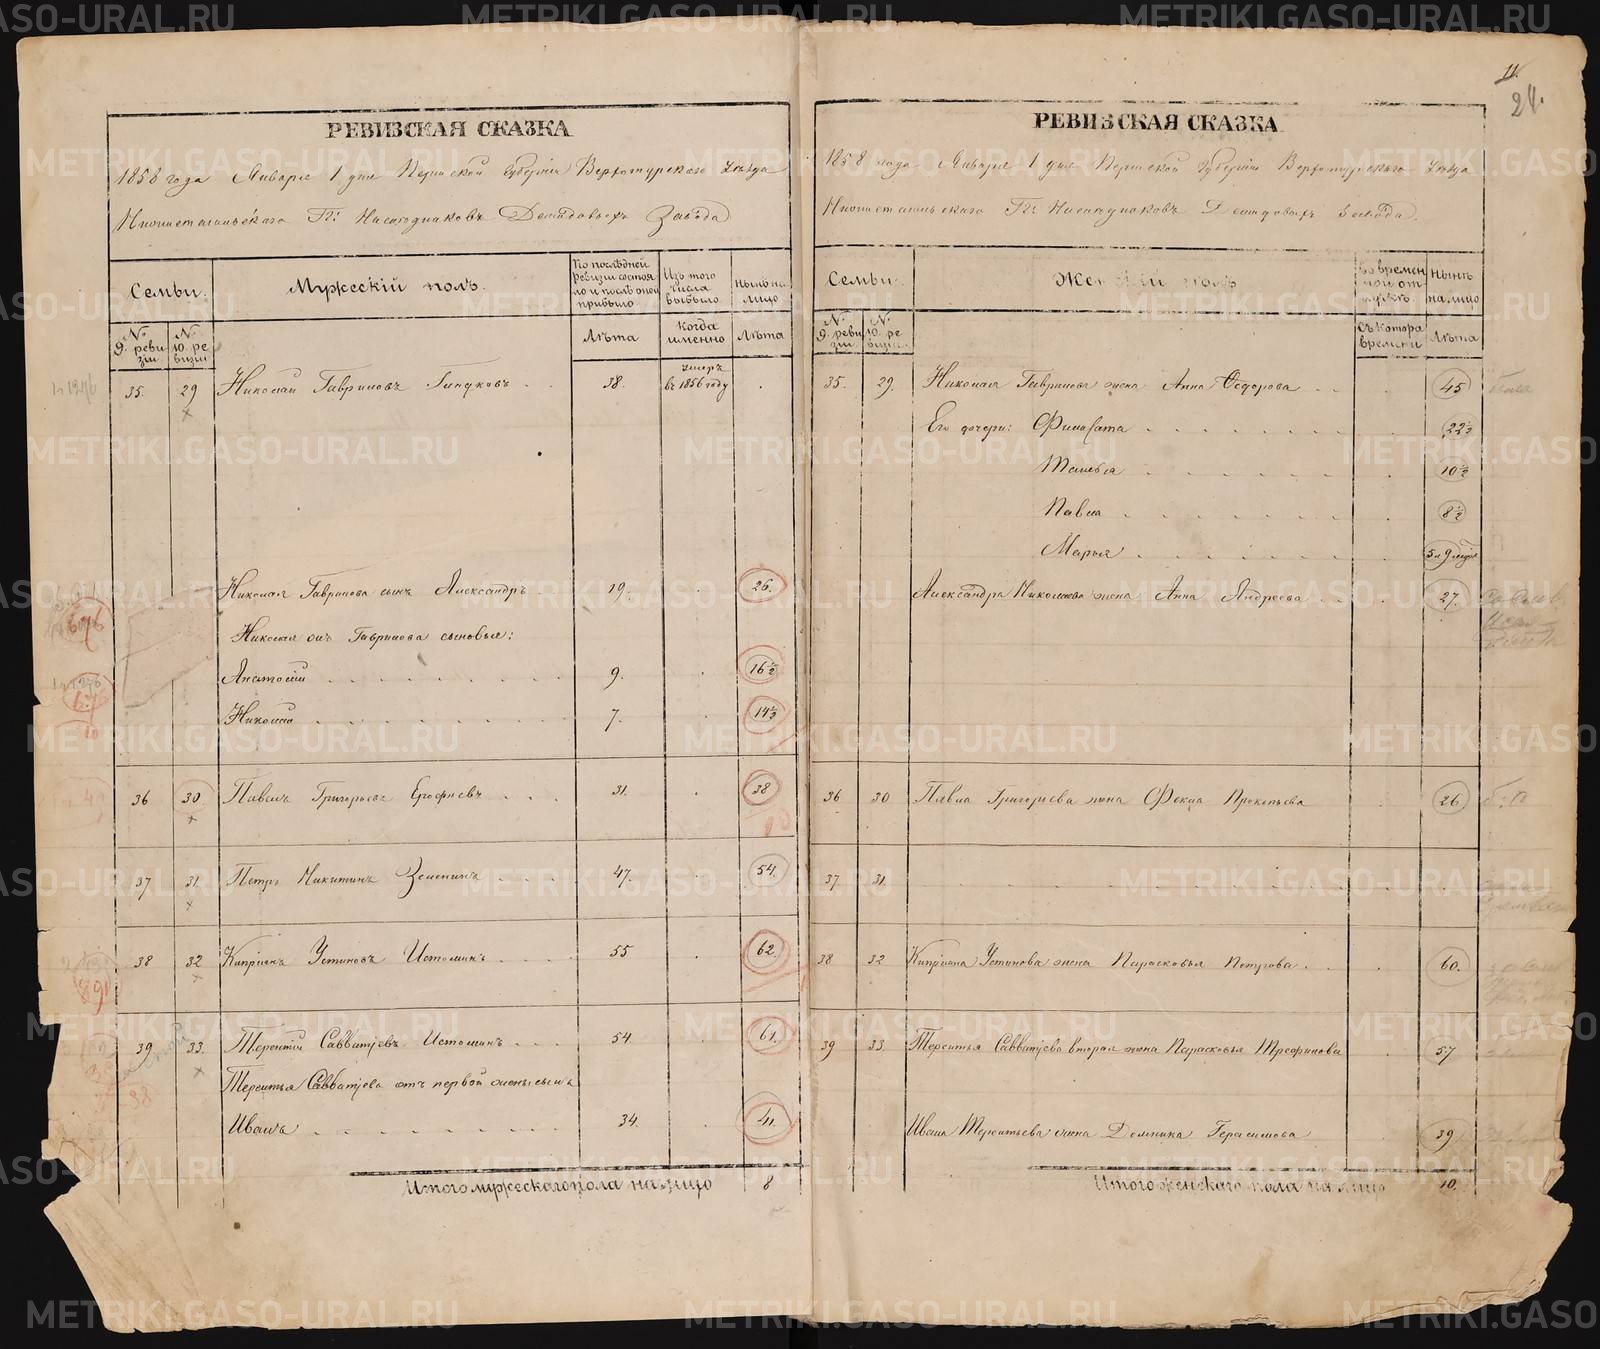 11.
24.
РЕВИЗСКАЯ СКАЗКА
1858 года Января 1 дня Пермской Губерніи Верхотурского Уѣзда
Нижнетагильскаго Гг: Насѣдниковъ Демидовыхъ Завода
Семьи.
Мужескій полъ.
По послѣдней ревизіи состояло и послѣ оной прибыло.
Изъ того числа выбыло.
Нынѣ на лицо
№ 9. ревизіи.
№ 10. ревизіи
Лѣта
когда именно
Лѣта
35. 29 Николай Гавриловъ 38. умеръ въ 1856 году
Николая Гаврилова сынъ Александръ 19. 26.
Николая онъ Гаврилова сыновья:
Анатолій 9. 16½
Николай 7. 14½
36 30 Павелъ Григорьевъ Ерофѣевъ 31. 38
37 31. Петръ Никитинъ 47. 54.
38 32 Кипріянъ Устиновъ Истоминъ 55 62.
39 33. Терентій Савватѣевъ Истоминъ 54. 61.
Терентья Савватѣева отъ первой жены сынъ
Иванъ 34. 41.
Итого мужескаго пола на лицо 8
РЕВИЗСКАЯ СКАЗКА
1858 года Января 1 дня Пермской Губерніи Верхотурского Уѣзда
Нижнетагильскаго Гг: Насѣдниковъ Демидовыхъ Завода.
Семьи.
Женскій полъ
Во временной отлучкѣ.
Нынѣ на лицо
№ 9. ревизіи.
№ 10. ревизіи.
Съ котора времени
Лѣта
35. 29. Николая Гаврилова жена Анна Ѳедорова 45
Его дочери:
10½
Павла 8½
Марья
Александра Николаева жена Анна Андреева 27.
36 30 Павла Григорьева жена Фекла Прокопьева 26
37. 31.
38 32 Кипріяна Устинова жена Парасковья Петрова 60.
39 33. Терентья Савватѣева вторая жена Парасковья Трефилова 57
Ивана Терентьева жена Домника Герасимова 39
Итого женскаго пола на лицо 10.
METRIKI.GASO-URAL.RU